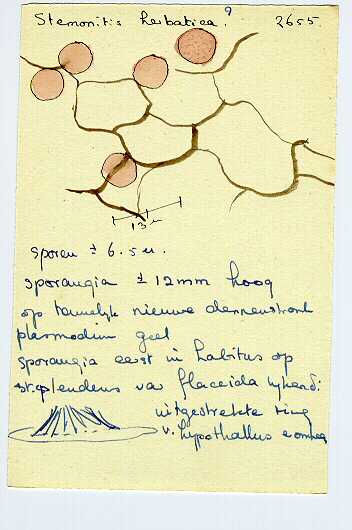 Stemonitis herbatica ? 2655.
13 u
sporen ± 6.5 u.
sporangia ± 12mm hoog
op tamelijk nieuwe dennenstronk
plasmodium geel
sporangia eerst in habitus op
st. splendens var flaccida lijkend:
uitgestrekte ring
v. hypothallus eromheen